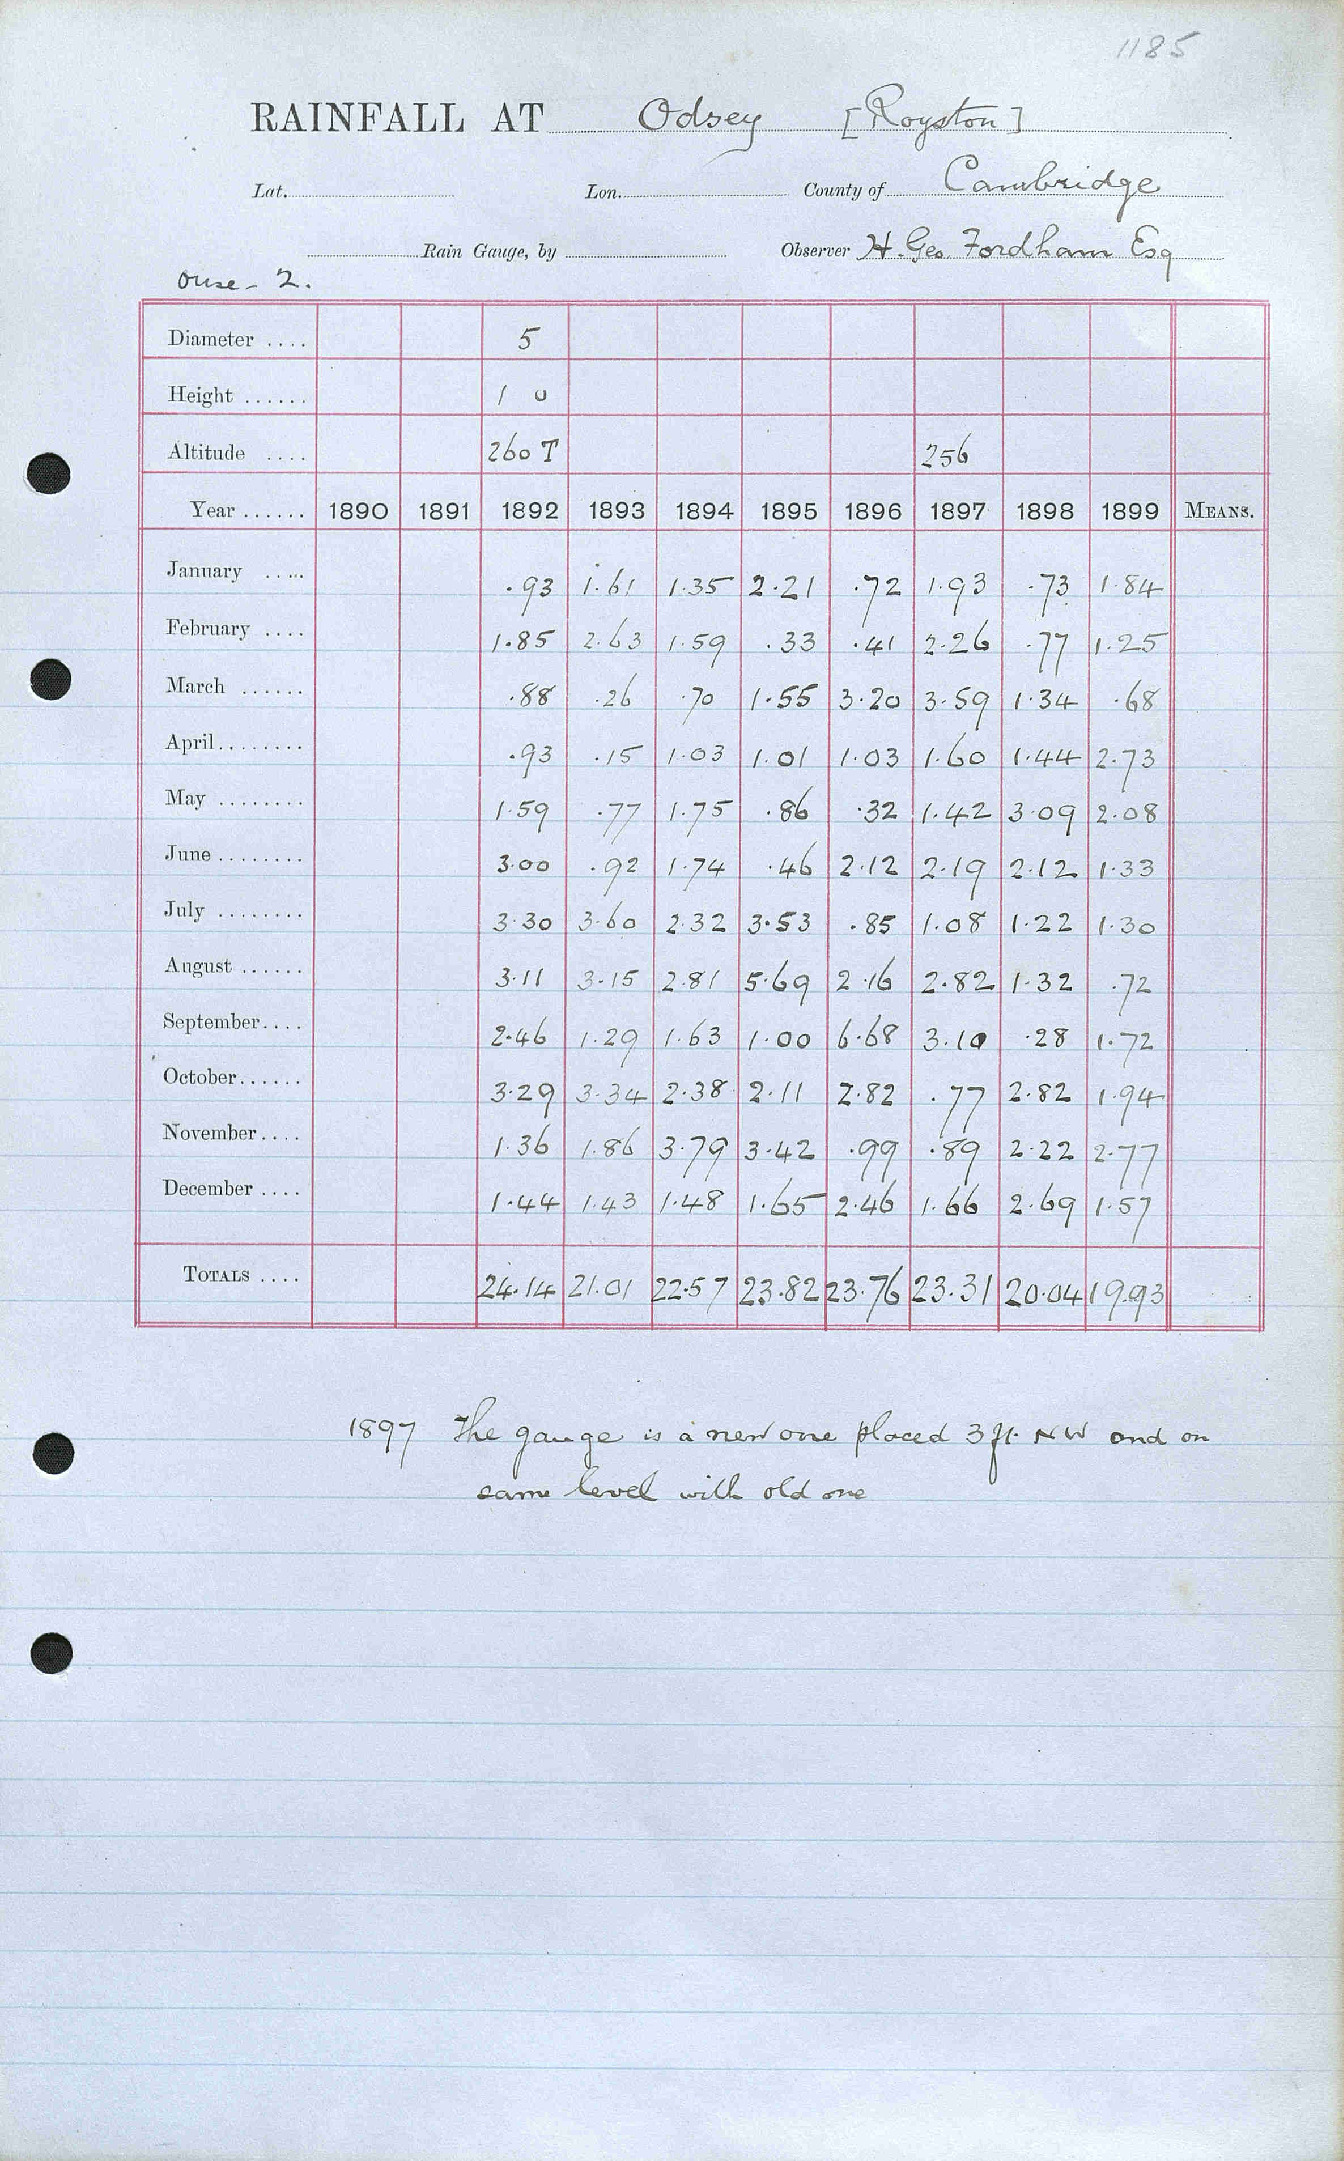 1185
RAINFALL AT Odsey [Royston]
Lat. Lon. County of Cambridge
Rain Gauge, by Observer H. Geo. Fordham Esq
Ouse - 2.
Diameter .... 5
Height ...... 1 0
Altitude .... 260 T 256
Year ...... 1890 1891 1892 1893 1894 1895 1896 1897 1898 1899 MEANS.
January ..... .93 1.61 1.35 2.21 .72 1.93 .73 1.84
February .... 1.85 2.63 1.59 .33 .41 2.26 .77 1.25
March ...... .88 .26 .70 1.55 3.20 3.59 1.34 .68
April........ .93 .15 1.03 1.01 1.03 1.60 1.44 2.73
May ........ 1.59 .77 1.75 .86 .32 1.42 3.09 2.08
June ........ 3.00 .92 1.74 .46 2.12 2.19 2.12 1.33
July ........ 3.30 3.60 2.32 3.53 .85 1.08 1.22 1.30
August ...... 3.11 3.15 2.81 5.69 2.16 2.82 1.32 .72
September.... 2.46 1.29 1.63 1.00 6.68 3.10 .28 1.72
October...... 3.29 3.34 2.38 2.11 2.82 .77 2.82 1.94
November.... 1.36 1.86 3.79 3.42 .99 .89 2.22 2.77
December .... 1.44 1.43 1.48 1.65 2.46 1.66 2.69 1.57
TOTALS .... 24.14 21.01 22.57 23.82 23.76 23.31 20.04 19.93
1897 The gauge is a new one placed 3 ft. NW and on
same level with old one